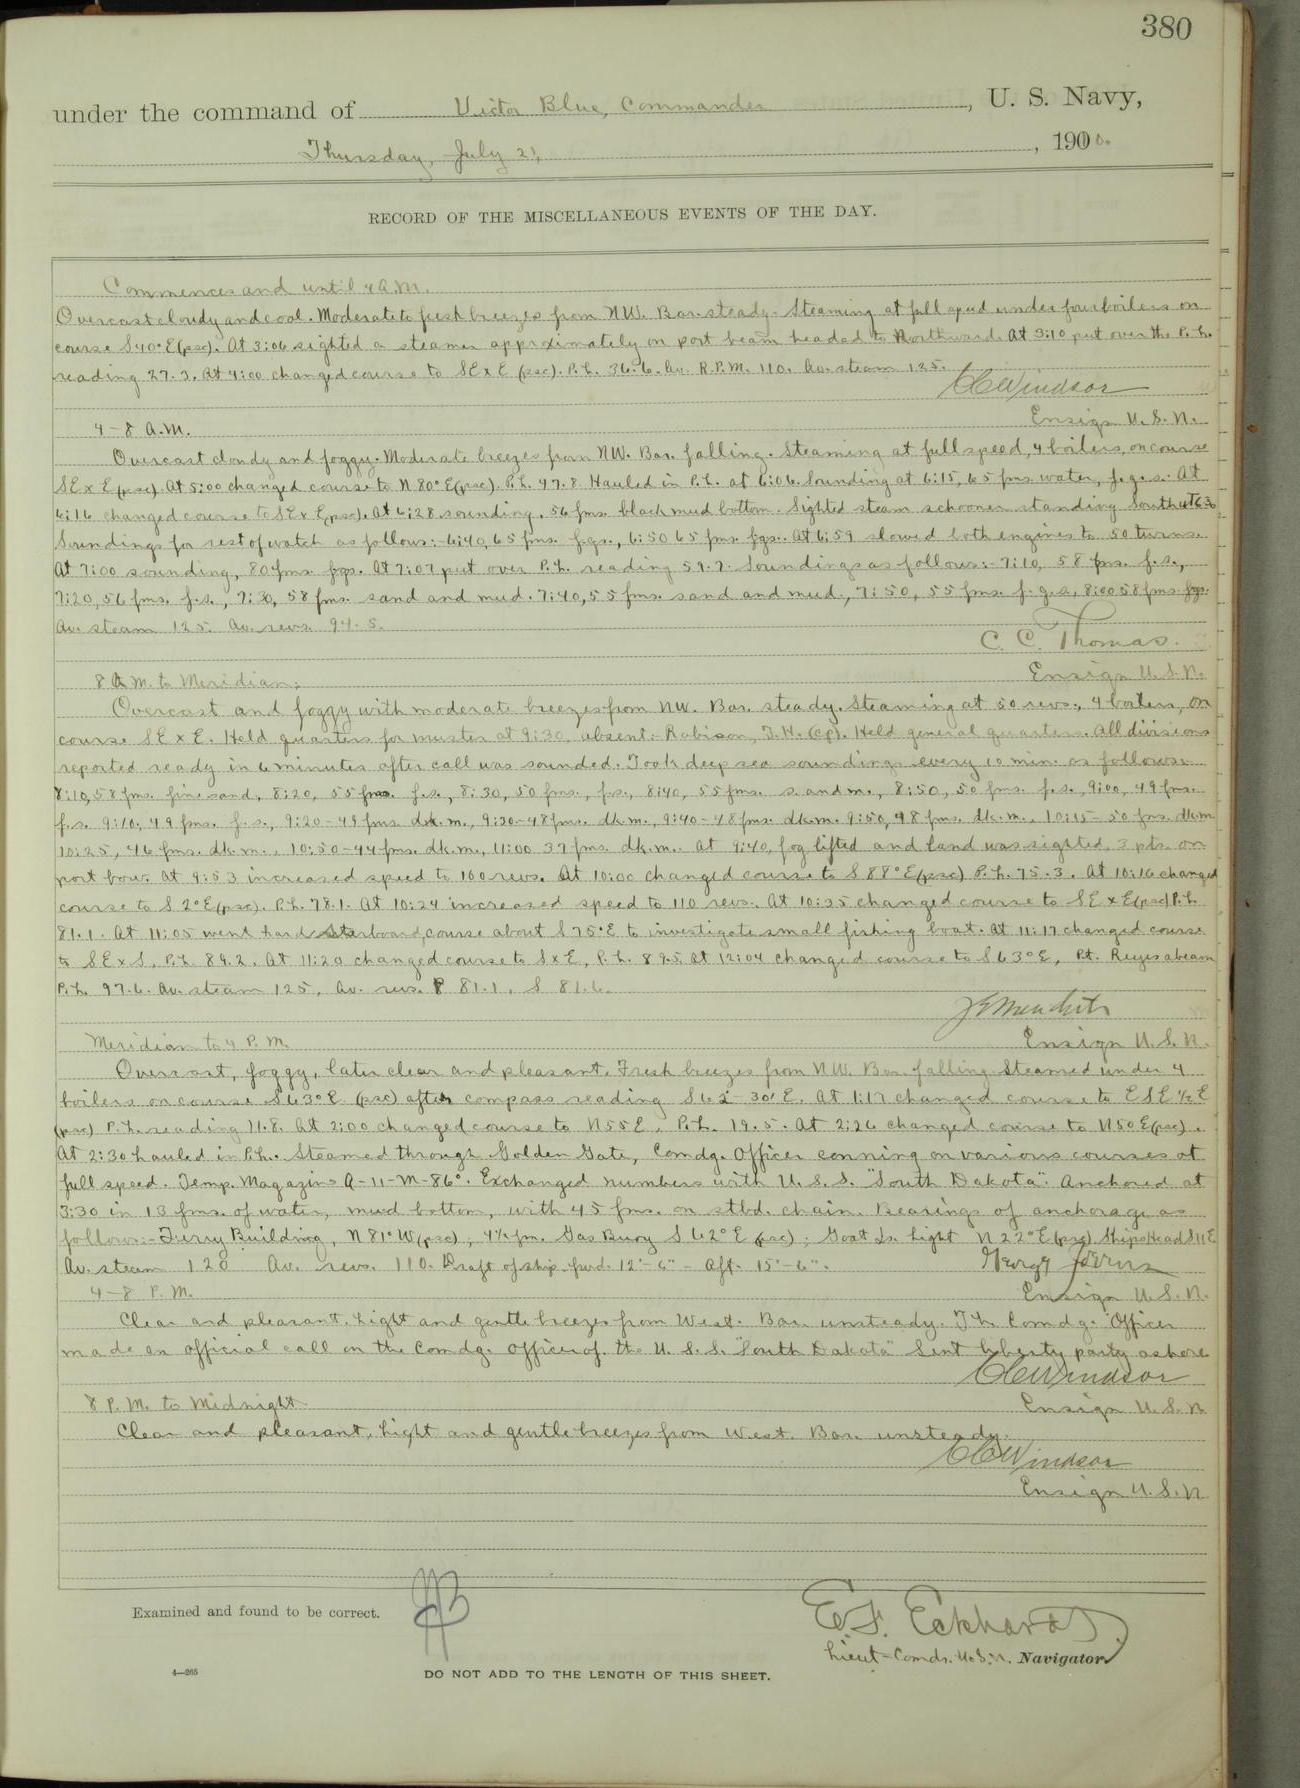 380
under the command of Victor Blue, Commander, U. S. Navy,
Thursday, July 21, 1900.
RECORD OF THE MISCELLANEOUS EVENTS OF THE DAY.
Commences and until 4 A.M.
Overcast cloudy and cool. Moderate to fresh breezes from NW. Bar. steady. Steaming at full speed under four boilers on
course S40°E(psc). At 3:06 sighted a steamer approximately on port beam headed to Northward. At 3:10 put over the P.L.
reading 27.3. At 4:00 changed course to SExE (psc). P.L. 36.6. Av. R.P.M. 110. Av. steam 125.
CCWindsor
Ensign U.S.N.
4-8 A.M.
Overcast cloudy and foggy. Moderate breezes from NW. Bar. falling. Steaming at full speed, 4 boilers, on course
SExE(psc). At 5:00 changed course to N80°E(psc). P.L. 47.8. Hauled in P.L. at 6:06. Sounding at 6:15, 65 fms. water, f.g.s. At
6:16 changed course to SExE(psc). At 6:28 sounding, 56 fms. black mud bottom. Sighted steam schooner standing South at 6:30
Soundings for rest of watch as follows:- 6:40, 65 fms. f.g.s., 6:50 65 fms. fgs. At 6:59 slowed both engines to 50 turns.
At 7:00 sounding, 80 fms. fgs. At 7:07 put over P.L. reading 59.7. Soundings as follows:- 7:10, 58 fms. f.s.,
7:20, 56 fms. f.s., 7:30, 58 fms. sand and mud. 7:40, 55 fms. sand and mud., 7:50, 55 fms. f.g.s, 8:00 58 fms. fgs.
Av. steam 125. Av. revs. 94.5.
C. C. Thomas.
Ensign U.S.N.
8 A.M. to Meridian:
Overcast and foggy with moderate breezes from NW. Bar. steady. Steaming at 50 revs., 4 boilers, on
course SExE. Held quarters for muster at 9:30, absent:- Robison, J.H. (cp). Held general quarters. All divisions
reported ready in 6 minutes after call was sounded. Took deep sea soundings every 10 min. as follows:
8:10, 58 fms. fine sand, 8:20, 55 fms. f.s., 8:30, 50 fms., f.s., 8:40, 55 fms. s. and m., 8:50, 50 fms. f.s., 9:00, 49 fms.
f.s. 9:10, 49 fms. f.s., 9:20-49 fms. dk.m., 9:30-48 fms. dk.m., 9:40-48 fms. dk.m. 9:50, 48 fms. dk.m., 10:15-50 fms. dk.m
10:25, 46 fms. dk.m., 10:50-44 fms. dk.m, 11:00 37 fms. dk.m. At 9:40, fog lifted and land was sighted, 3 pts. on
port bow. At 9:53 increased speed to 100 revs. At 10:00 changed course to S88°E(psc) P.L. 75.3. At 10:16 changed
course to S2°E(psc). P.L. 78.1. At 10:24 increased speed to 110 revs. At 10:35 changed course to SExE(psc) P.L.
81.1. At 11:05 went hard starboard, course about S75°E to investigate small fishing boat. At 11:17 changed course
to SExS, P.L. 89.2. At 11:20 changed course to SxE, P.L. 89.5 At 12:04 changed course to S63°E, Pt. Reyes abeam
P.L. 97.6. Av. steam 125, Av. revs. P 81.1, S 81.6.
Ensign U.S.N.
Meridian to 4 P.M.
Overcast, foggy, later clear and pleasant. Fresh breezes from NW. Bar. falling. Steamed under 4
boilers on course S63°E (psc) after compass reading S62-30'E. At 1:17 changed course to ESE½E
(psc) P.L. reading 11.8. At 2:00 changed course to N55E, P.L. 19.5. At 2:26 changed course to N50E(psc).
At 2:30 hauled in P.L. Steamed through Golden Gate, Comdg. Officer conning on various courses at
full speed. Temp. Magazine A-11-M-86°. Exchanged numbers with U.S.S. "South Dakota". Anchored at
3:30 in 13 fms. of water, mud bottom, with 45 fms. on stbd. chain. Bearings of anchorage as
follows:- Ferry Building, N81°W(psc); 4½ fm. Gas Buoy S62°E (psc); Goat Is. Light N22°E(psc). Ships Head S11E
Av. steam 120 Av. revs. 110. Draft of ship. fwd. 12'-6" - Aft. 15'-6".
Ensign U.S.N.
4-8 P.M.
Clear and pleasant. Light and gentle breezes from West. Bar. unsteady. The Comdg. Officer
made an official call on the Comdg. Officer of the U.S.S. "South Dakota" Sent liberty party ashore
CCWindsor
Ensign U.S.N.
8 P.M. to Midnight
Clear and pleasant, light and gentle breezes from West. Bar. unsteady.
CCWindsor
Ensign U.S.N
Examined and found to be correct.
E.F. Eckhardt
Lieut-Comdr. U.S.N. Navigator
4—265
DO NOT ADD TO THE LENGTH OF THIS SHEET.